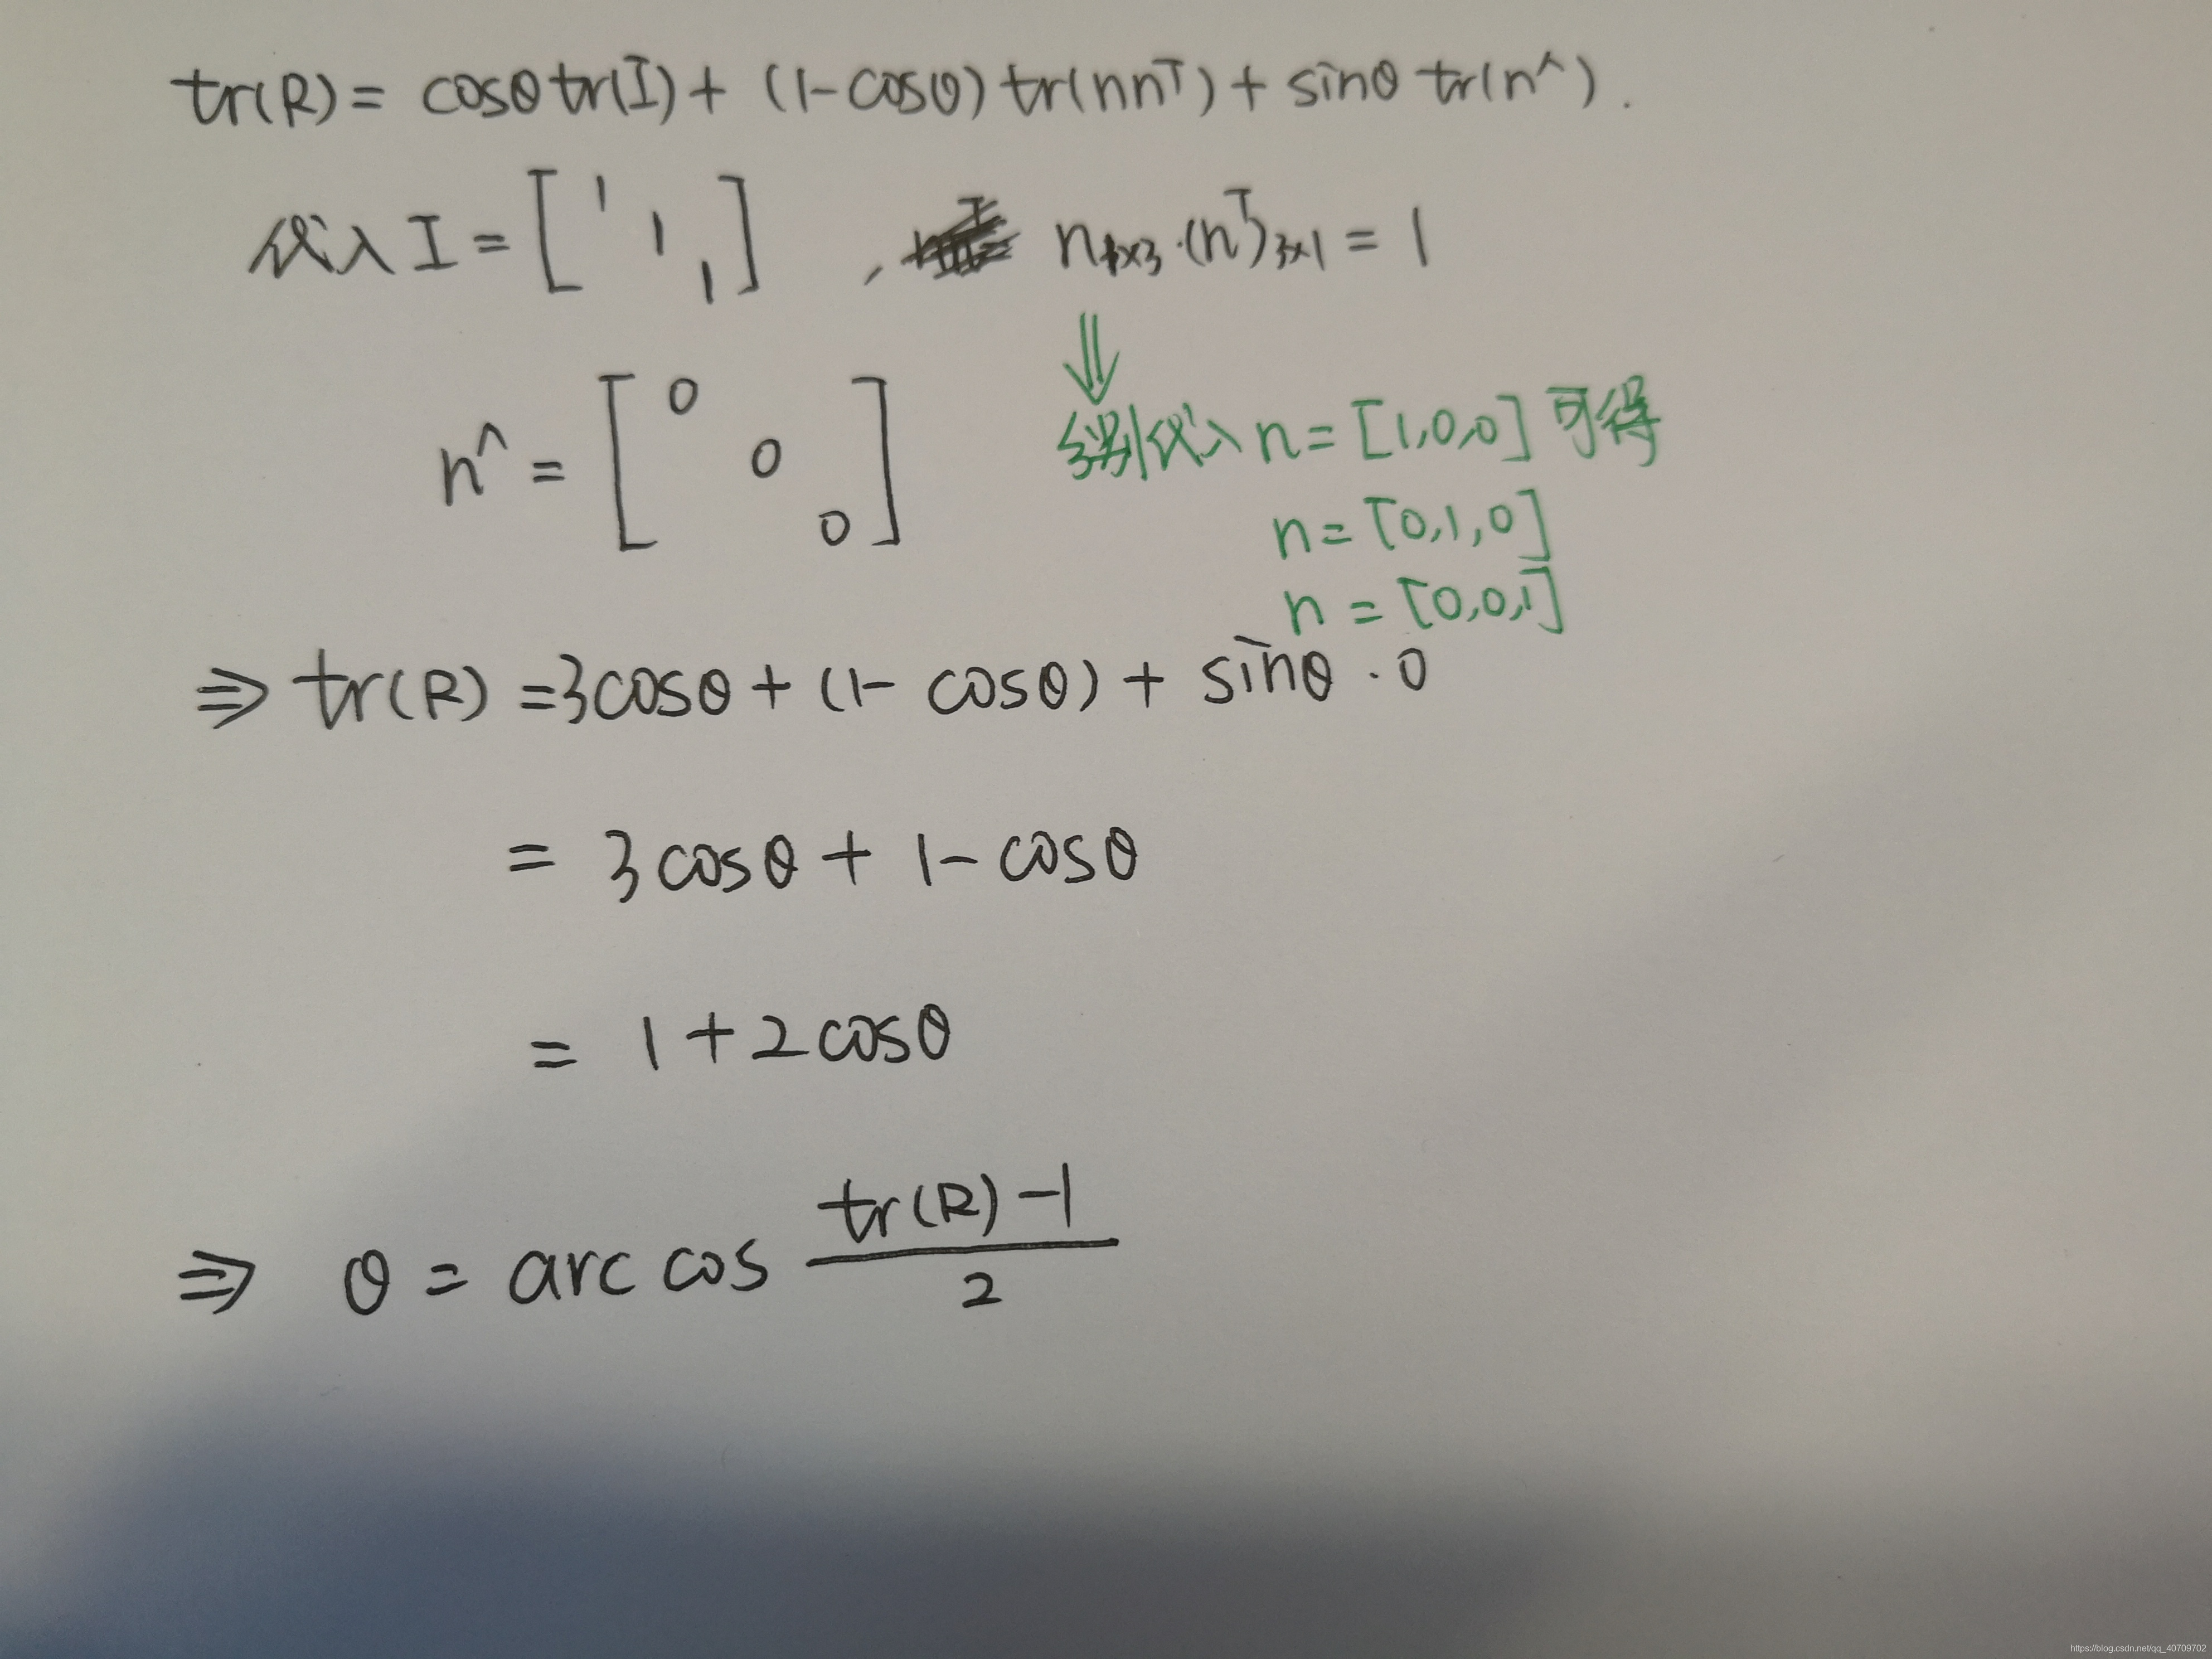 tr(R) = cosθ tr(I) + (1-cosθ) tr(nnᵀ) + sinθ tr(n^).
代入 I = [1 1 1] , n₁ₓ₃·(nᵀ)₃ₓ₁ = 1
⇓
n^ = [0 0 0]
分别代入 n = [1,0,0] 可得
n = [0,1,0]
n = [0,0,1]
⇒ tr(R) = 3cosθ + (1- cosθ) + sinθ · 0
= 3cosθ + 1- cosθ
= 1 + 2cosθ
⇒ θ = arc cos (tr(R) -1)/2
https://blog.csdn.net/qq_40709702